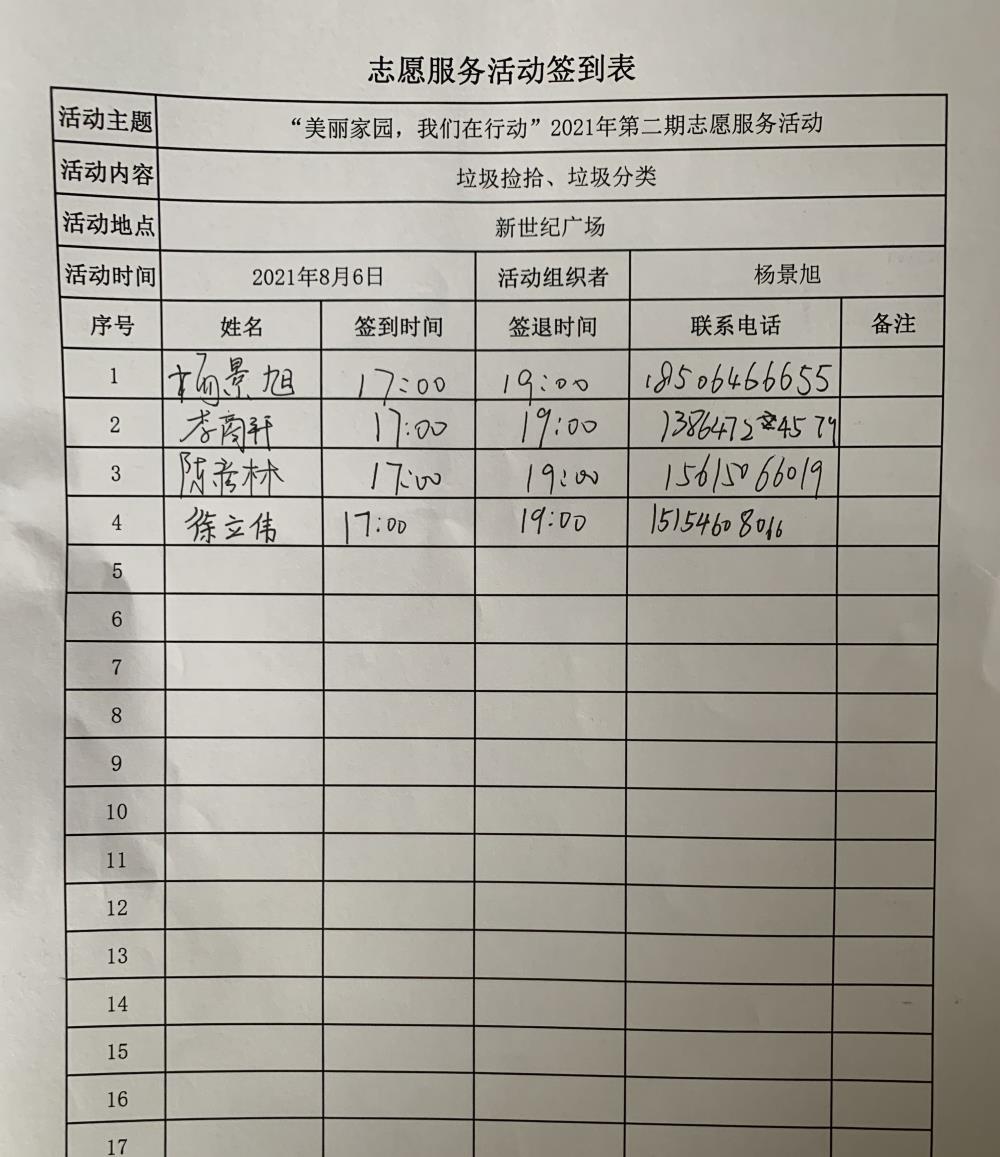 志愿服务活动签到表
活动主题 “美丽家园，我们在行动”2021年第二期志愿服务活动
活动内容 垃圾捡拾、垃圾分类
活动地点 新世纪广场
活动时间 2021年8月6日 活动组织者 杨景旭
序号 姓名 签到时间 签退时间 联系电话 备注
1 杨景旭 17:00 19:00 18506466655
2 17:00 19:00
3 17:00 19:00 15615066019
4 徐立伟 17:00 19:00 15154608016
5
6
7
8
9
10
11
12
13
14
15
16
17